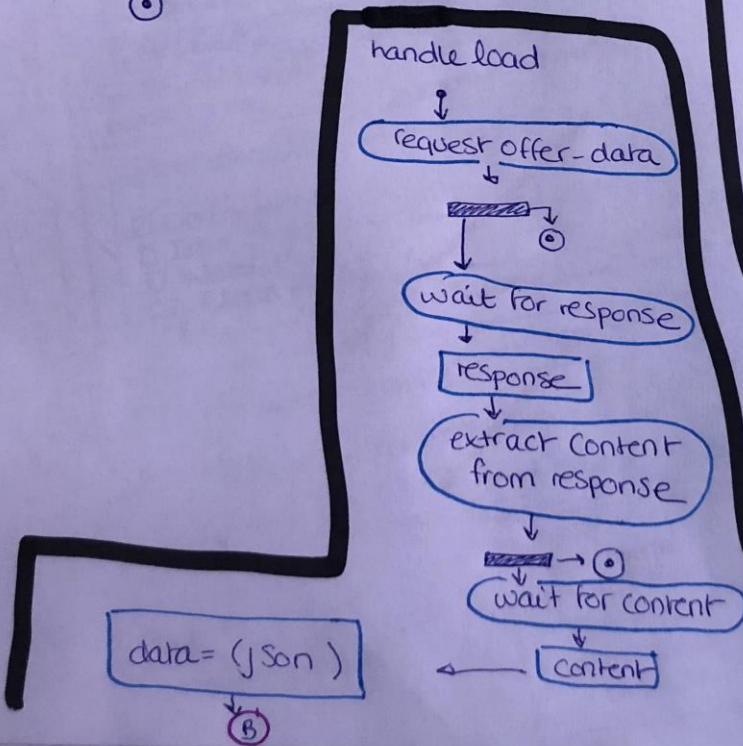 handle load
request offer-data
wait for response
response
extract content
from response
wait for content
content
data = (json)
B